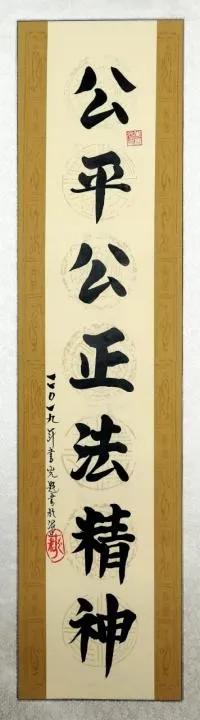 公平公正法精神
二〇一九年書